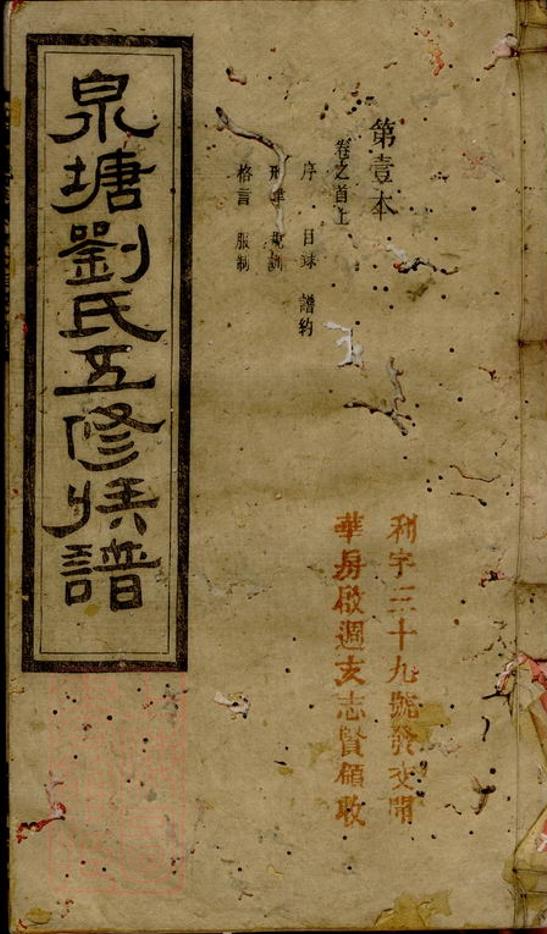 第壹本
卷之首上
序 目錄 譜約
刑律 訓
格言 服制
利字三十九號發交開
華房啟週支志賢領收
泉塘劉氏五修族譜